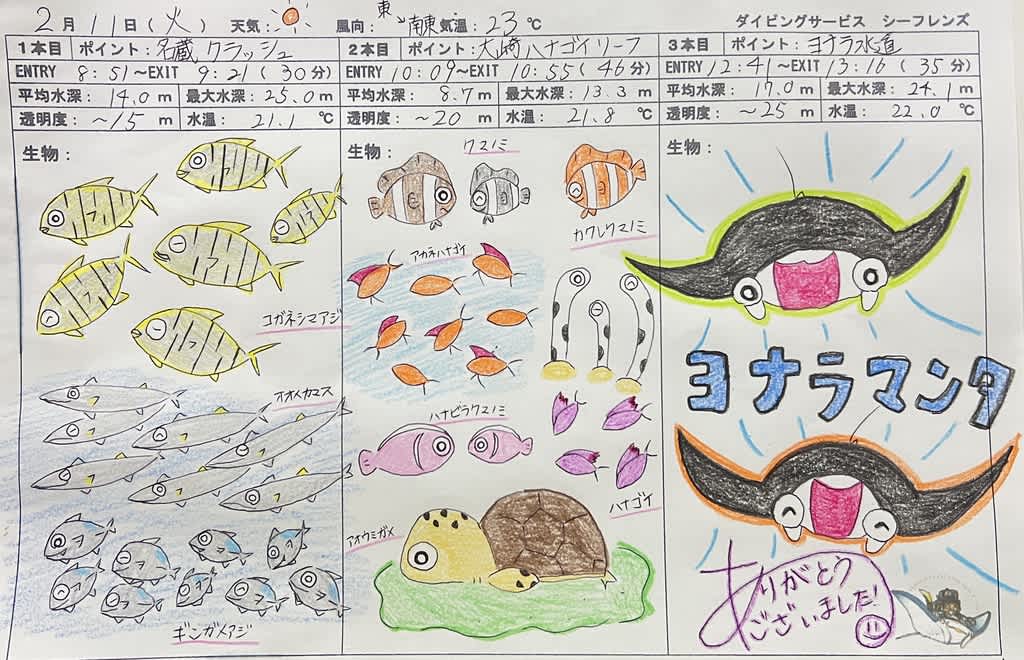 2月11日(火) 天気: 風向: 東〜南東 気温: 23℃ ダイビングサービス シーフレンズ
1本目 ポイント: 名蔵クラッシュ
ENTRY 8:51〜EXIT 9:21(30分)
平均水深: 14.0m 最大水深: 25.0m
透明度: 〜15m 水温: 21.1℃
生物:
コガネシマアジ
オオメカマス
ギンガメアジ
2本目 ポイント: 大崎ハナゴイリーフ
ENTRY 10:09〜EXIT 10:55(46分)
平均水深: 8.7m 最大水深: 13.3m
透明度: 〜20m 水温: 21.8℃
生物:
クマノミ
カクレクマノミ
アカネハナゴイ
ハナビラクマノミ
ハナゴイ
アオウミガメ
3本目 ポイント: ヨナラ水道
ENTRY 12:41〜EXIT 13:16(35分)
平均水深: 17.0m 最大水深: 24.1m
透明度: 〜25m 水温: 22.0℃
生物:
ヨナラマンタ
ありがとう
ございました!